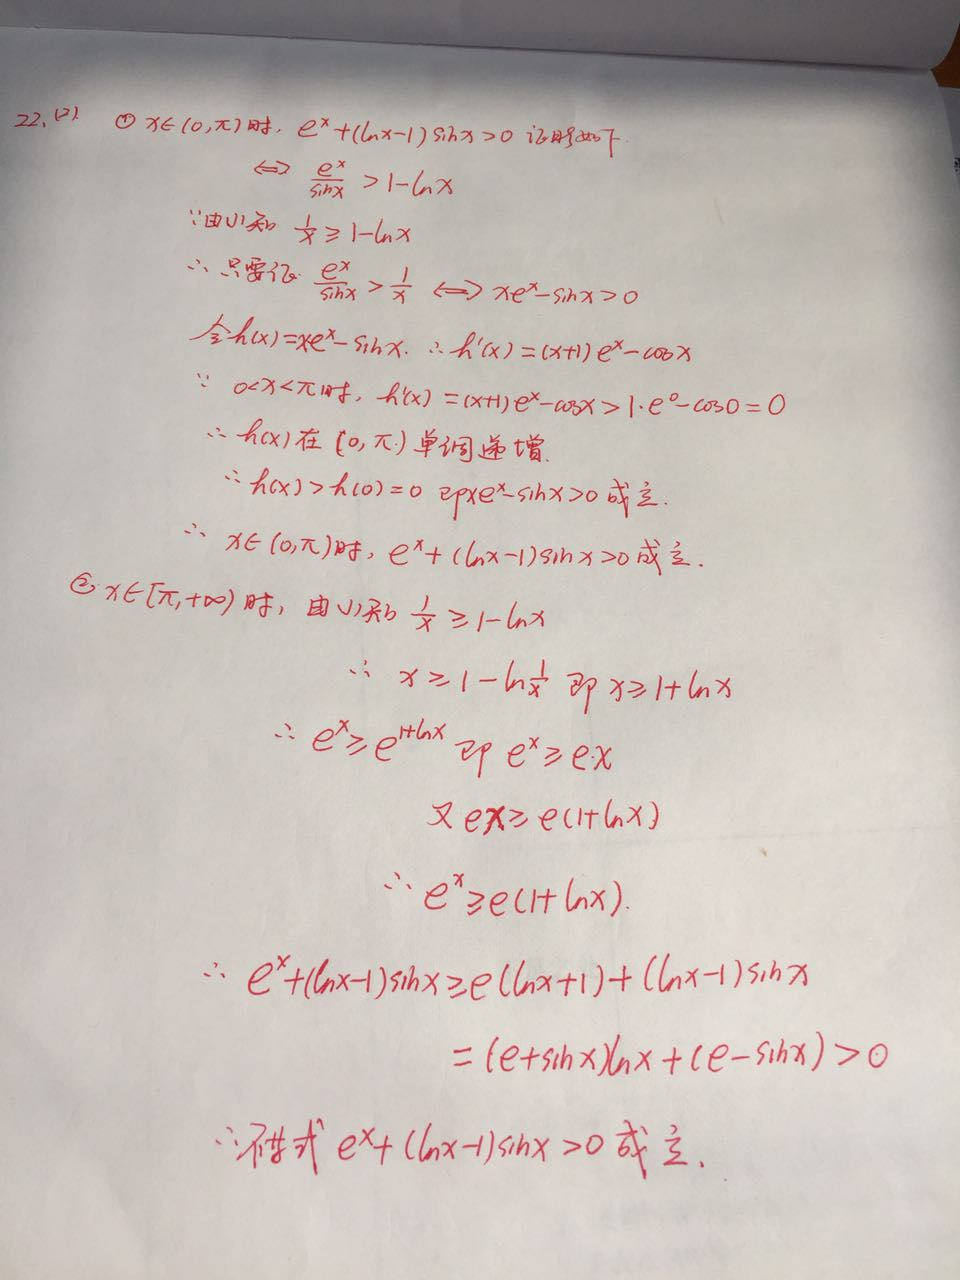 22.(2) ① x∈(0,π)时, eˣ+(lnx-1)sinx>0 证明如下
⇔ eˣ/sinx > 1-lnx
∵由(1)知 1/x ≥ 1-lnx
∴ 只要证 eˣ/sinx > 1/x ⇔ xeˣ-sinx>0
令h(x)=xeˣ-sinx. ∴h'(x)=(x+1)eˣ-cosx
∵ 0<x<π时, h'(x)=(x+1)eˣ-cosx>1·e⁰-cos0=0
∴h(x)在(0,π)单调递增.
∴h(x)>h(0)=0 即xeˣ-sinx>0成立.
∴ x∈(0,π)时, eˣ+(lnx-1)sinx>0成立.
② x∈[π,+∞)时, 由(1)知 1/x ≥ 1-lnx
∴ x ≥ 1-ln1/x 即 x≥1+lnx
∴ eˣ≥e¹⁺ˡⁿˣ 即 eˣ≥e·x
又 ex≥e(1+lnx)
∴ eˣ≥e(1+lnx).
∴ eˣ+(lnx-1)sinx≥e(lnx+1)+(lnx-1)sinx
=(e+sinx)lnx+(e-sinx)>0
∴不等式 eˣ+(lnx-1)sinx>0成立.